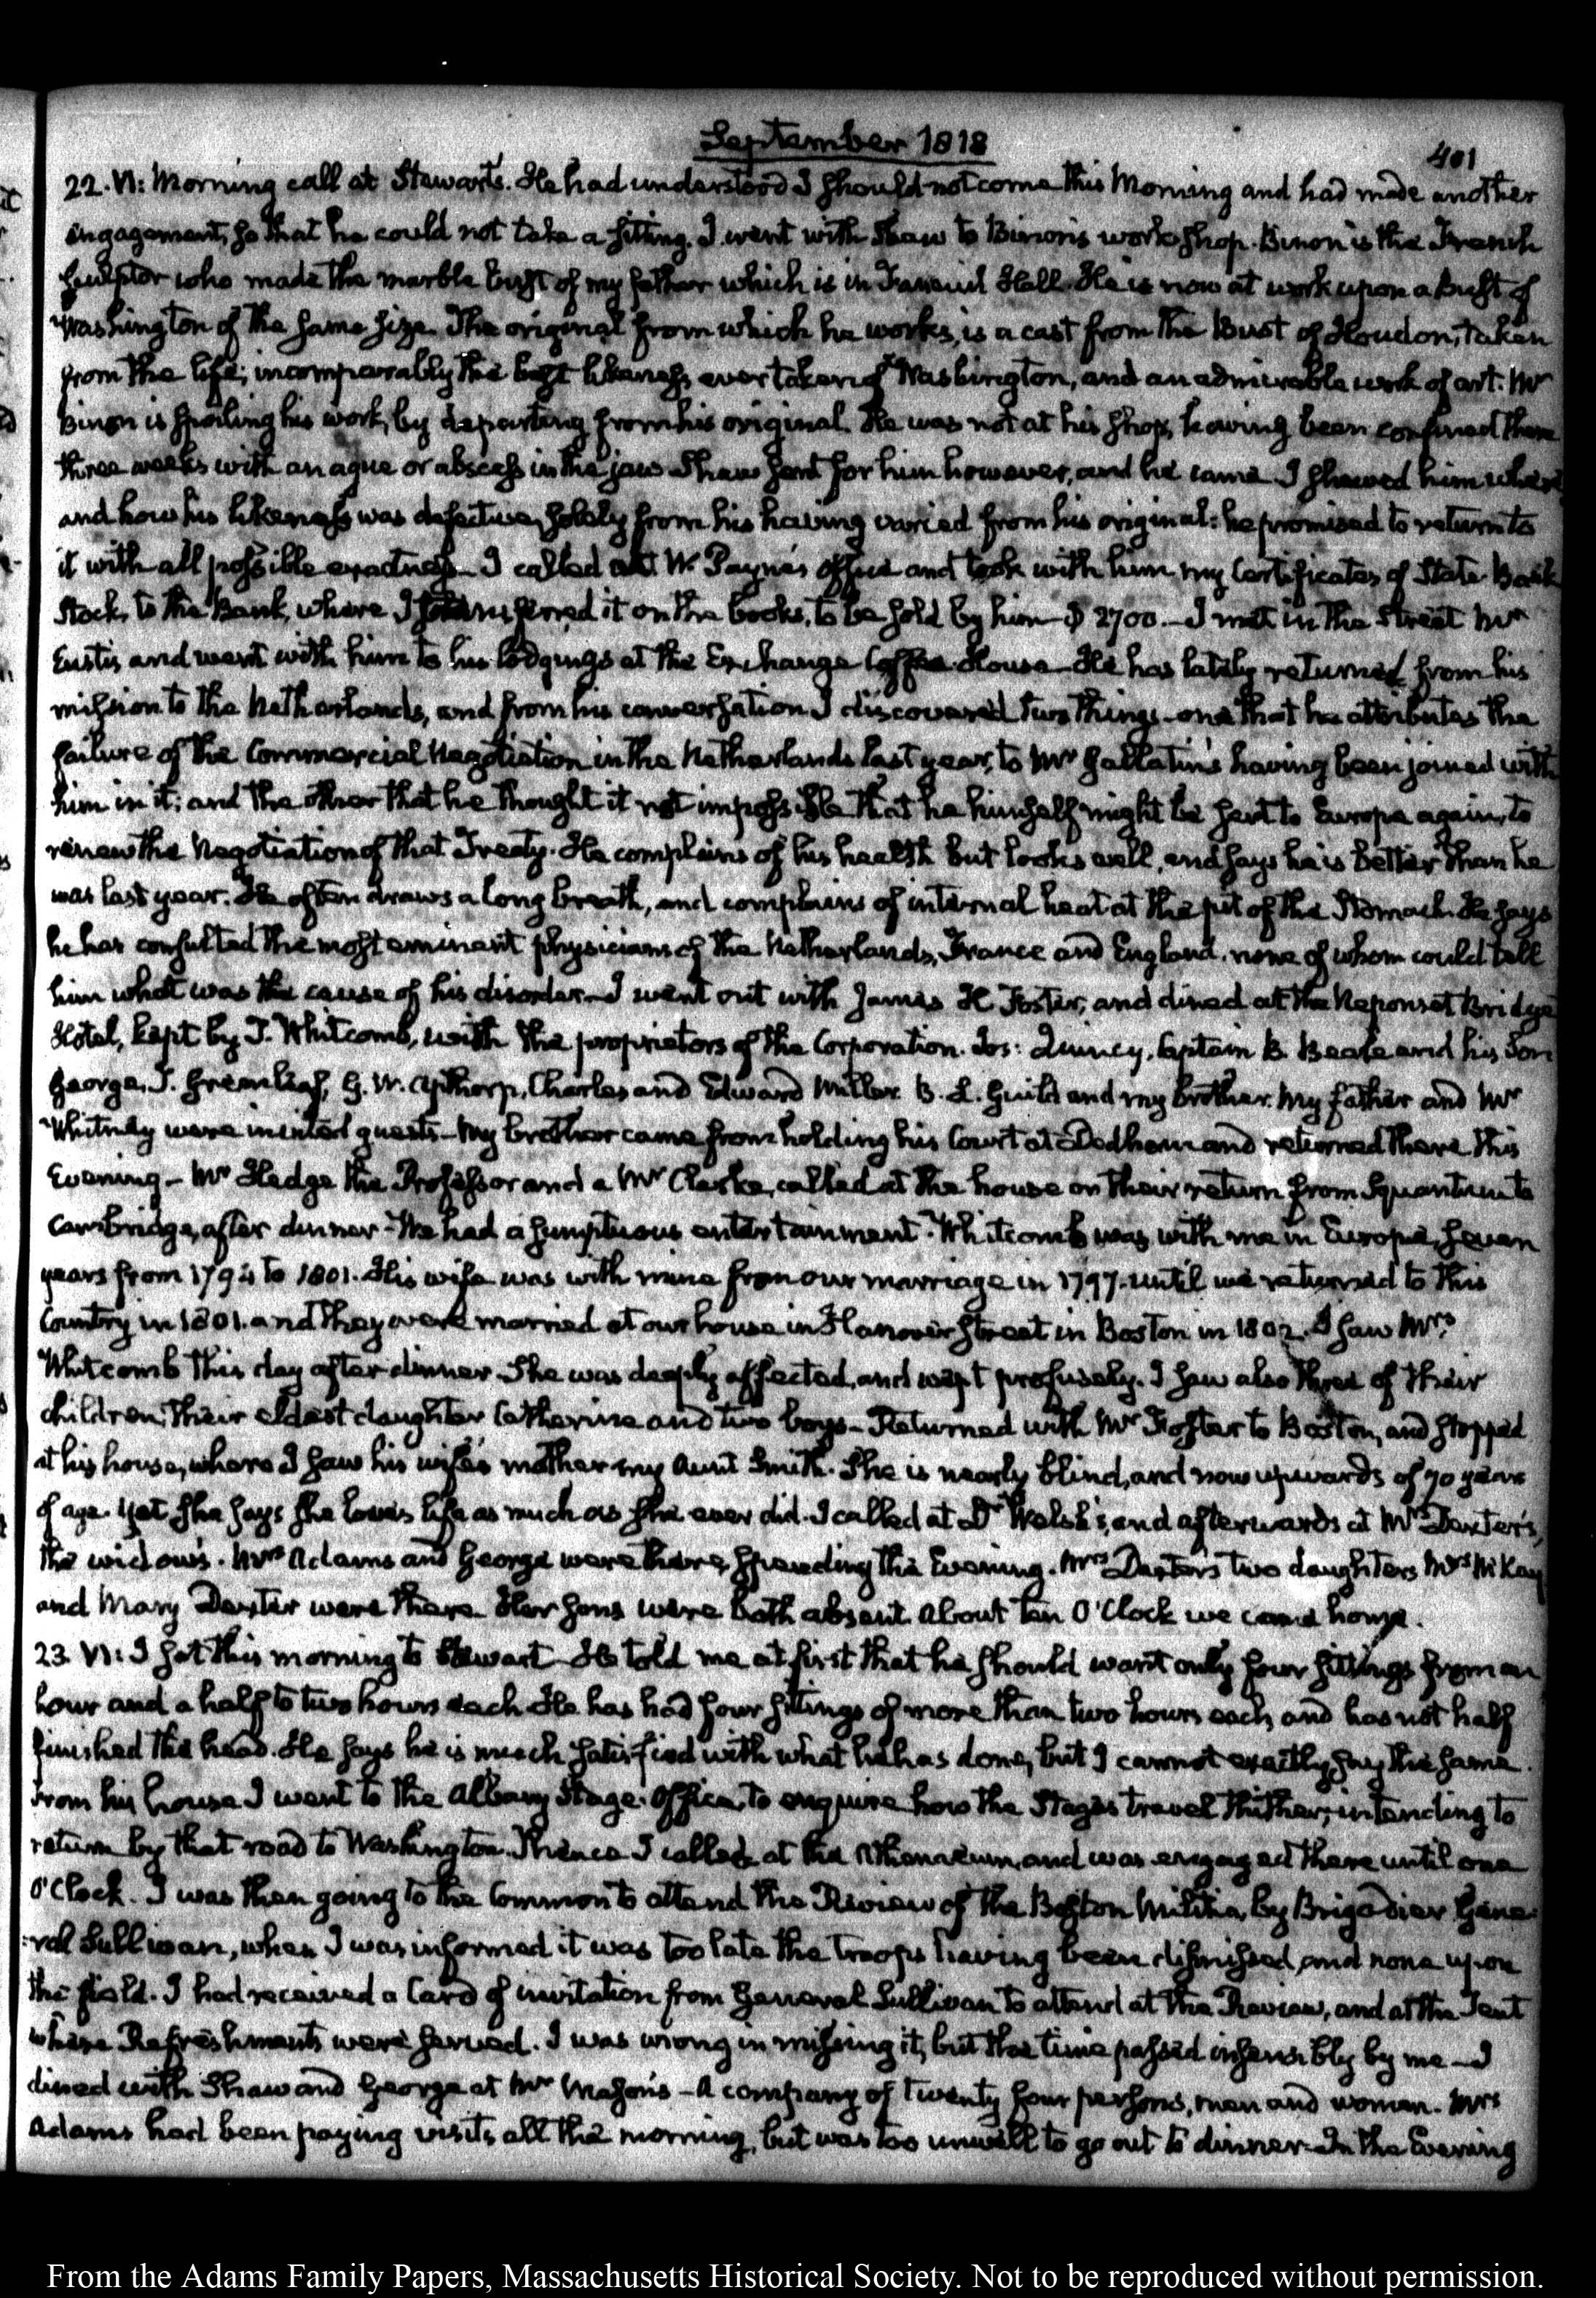 September 1818
401
22. VI: Morning call at Stewart's. He had understood I should not come this Morning and had made another
engagement, so that he could not take a sitting. I went with Shaw to Binon's work-shop. Binon is the French
Sculptor who made the marble bust of my father which is in Faneuil Hall. He is now at work upon a Bust of
Washington of the same size. The original from which he works, is a cast from the Bust of Houdon, taken
from the life; incomparably the best likeness ever taken of Washington, and an admirable work of art. Mr
Binon is spoiling his work, by departing from his original. He was not at his shop, having been confined there
three weeks with an ague or abscess in the jaw. Shaw sent for him however, and he came. I shewed him where
and how his likeness was defective, solely from his having varied from his original: he promised to return to
it with all possible exactness— I called at W. Payne's office and took with him my Certificates of State-Bank
Stock, to the Bank, where I transferred it on the books, to be sold by him $ 2700.— I met in the Street Mr
Eustis and went with him to his lodgings at the Exchange Coffee-House— He has lately returned from his
mission to the Netherlands, and from his conversation I discovered two things— one that he attributes the
failure of the Commercial Negotiation in the Netherlands last year, to Mr Gallatin's having been joined with
him in it; and the other that he thought it not impossible that he himself might be sent to Europe again, to
renew the Negotiation of that Treaty. He complains of his health but looks well, and says he is better than he
was last year. He often draws a long breath, and complains of internal heat at the pit of the Stomach. He says
he has consulted the most eminent physicians of the Netherlands, France and England. none of whom could tell
him what was the cause of his disorder— I went out with James H Foster, and dined at the Neponset Bridge
Hotel, kept by T. Whitcomb, with the proprietors of the Corporation. Jos: Quincy, Captain B. Beale and his Son
George, J. Greenleaf, G. W. Apthorp, Charles and Edward Miller. B. L. Guild and my brother. My father and Mr
Whitney were invited guests— My brother came from holding his Court at Dedham and returned there this
Evening— Mr Hedge the Professor and a Mr Clarke, called at the house on their return from Squantum to
Cambridge, after dinner— We had a sumptuous entertainment. Whitcomb was with me in Europe, seven
years from 1794 to 1801. His wife was with mine from our marriage in 1797. until we returned to this
Country in 1801. and they were married at our house in Hanover Street in Boston in 1802. I saw Mrs
Whitcomb this day after dinner. She was deeply affected, and wept profusely. I saw also three of their
children, their eldest daughter Catherine and two boys— Returned with Mr Foster to Boston, and stopped
at his house, where I saw his wife's mother my Aunt Smith. She is nearly blind, and now upwards of 70 years
of age. Yet she says she loves life as much as she ever did. I called at Dr Welsh's, and afterwards at Mrs Dexter's,
the widow's. Mrs Adams and George were there, spending the Evening. Mrs Dexter's two daughters Mrs McKay
and Mary Dexter were there. Her sons were both absent. About ten O'Clock we came home.
23. VI: I sat this morning to Stewart. He told me at first that he should want only four sittings from an
hour and a half to two hours each. He has had four sittings of more than two hours each, and has not half
finished the head. He says he is much satisfied with what he has done, but I cannot exactly say the same.
From his house I went to the Albany Stage-Office, to enquire how the Stages travel thither; intending to
return by that road to Washington. Thence I called at the Athenaeum, and was engaged there until one
O'Clock. I was then going to the Common to attend the Review of the Boston Militia, by Brigadier Gene-
ral Sullivan, when I was informed it was too late the troops having been dismissed, and none upon
the field. I had received a Card of invitation from General Sullivan to attend at the Review, and at the Tent
where Refreshments were served. I was wrong in missing it, but the time passed insensibly by me— I
dined with Shaw and George at Mr Mason's— A company of twenty four persons, men and women. Mrs
Adams had been paying visits all the morning, but was too unwell to go out to dinner— In the Evening
From the Adams Family Papers, Massachusetts Historical Society. Not to be reproduced without permission.